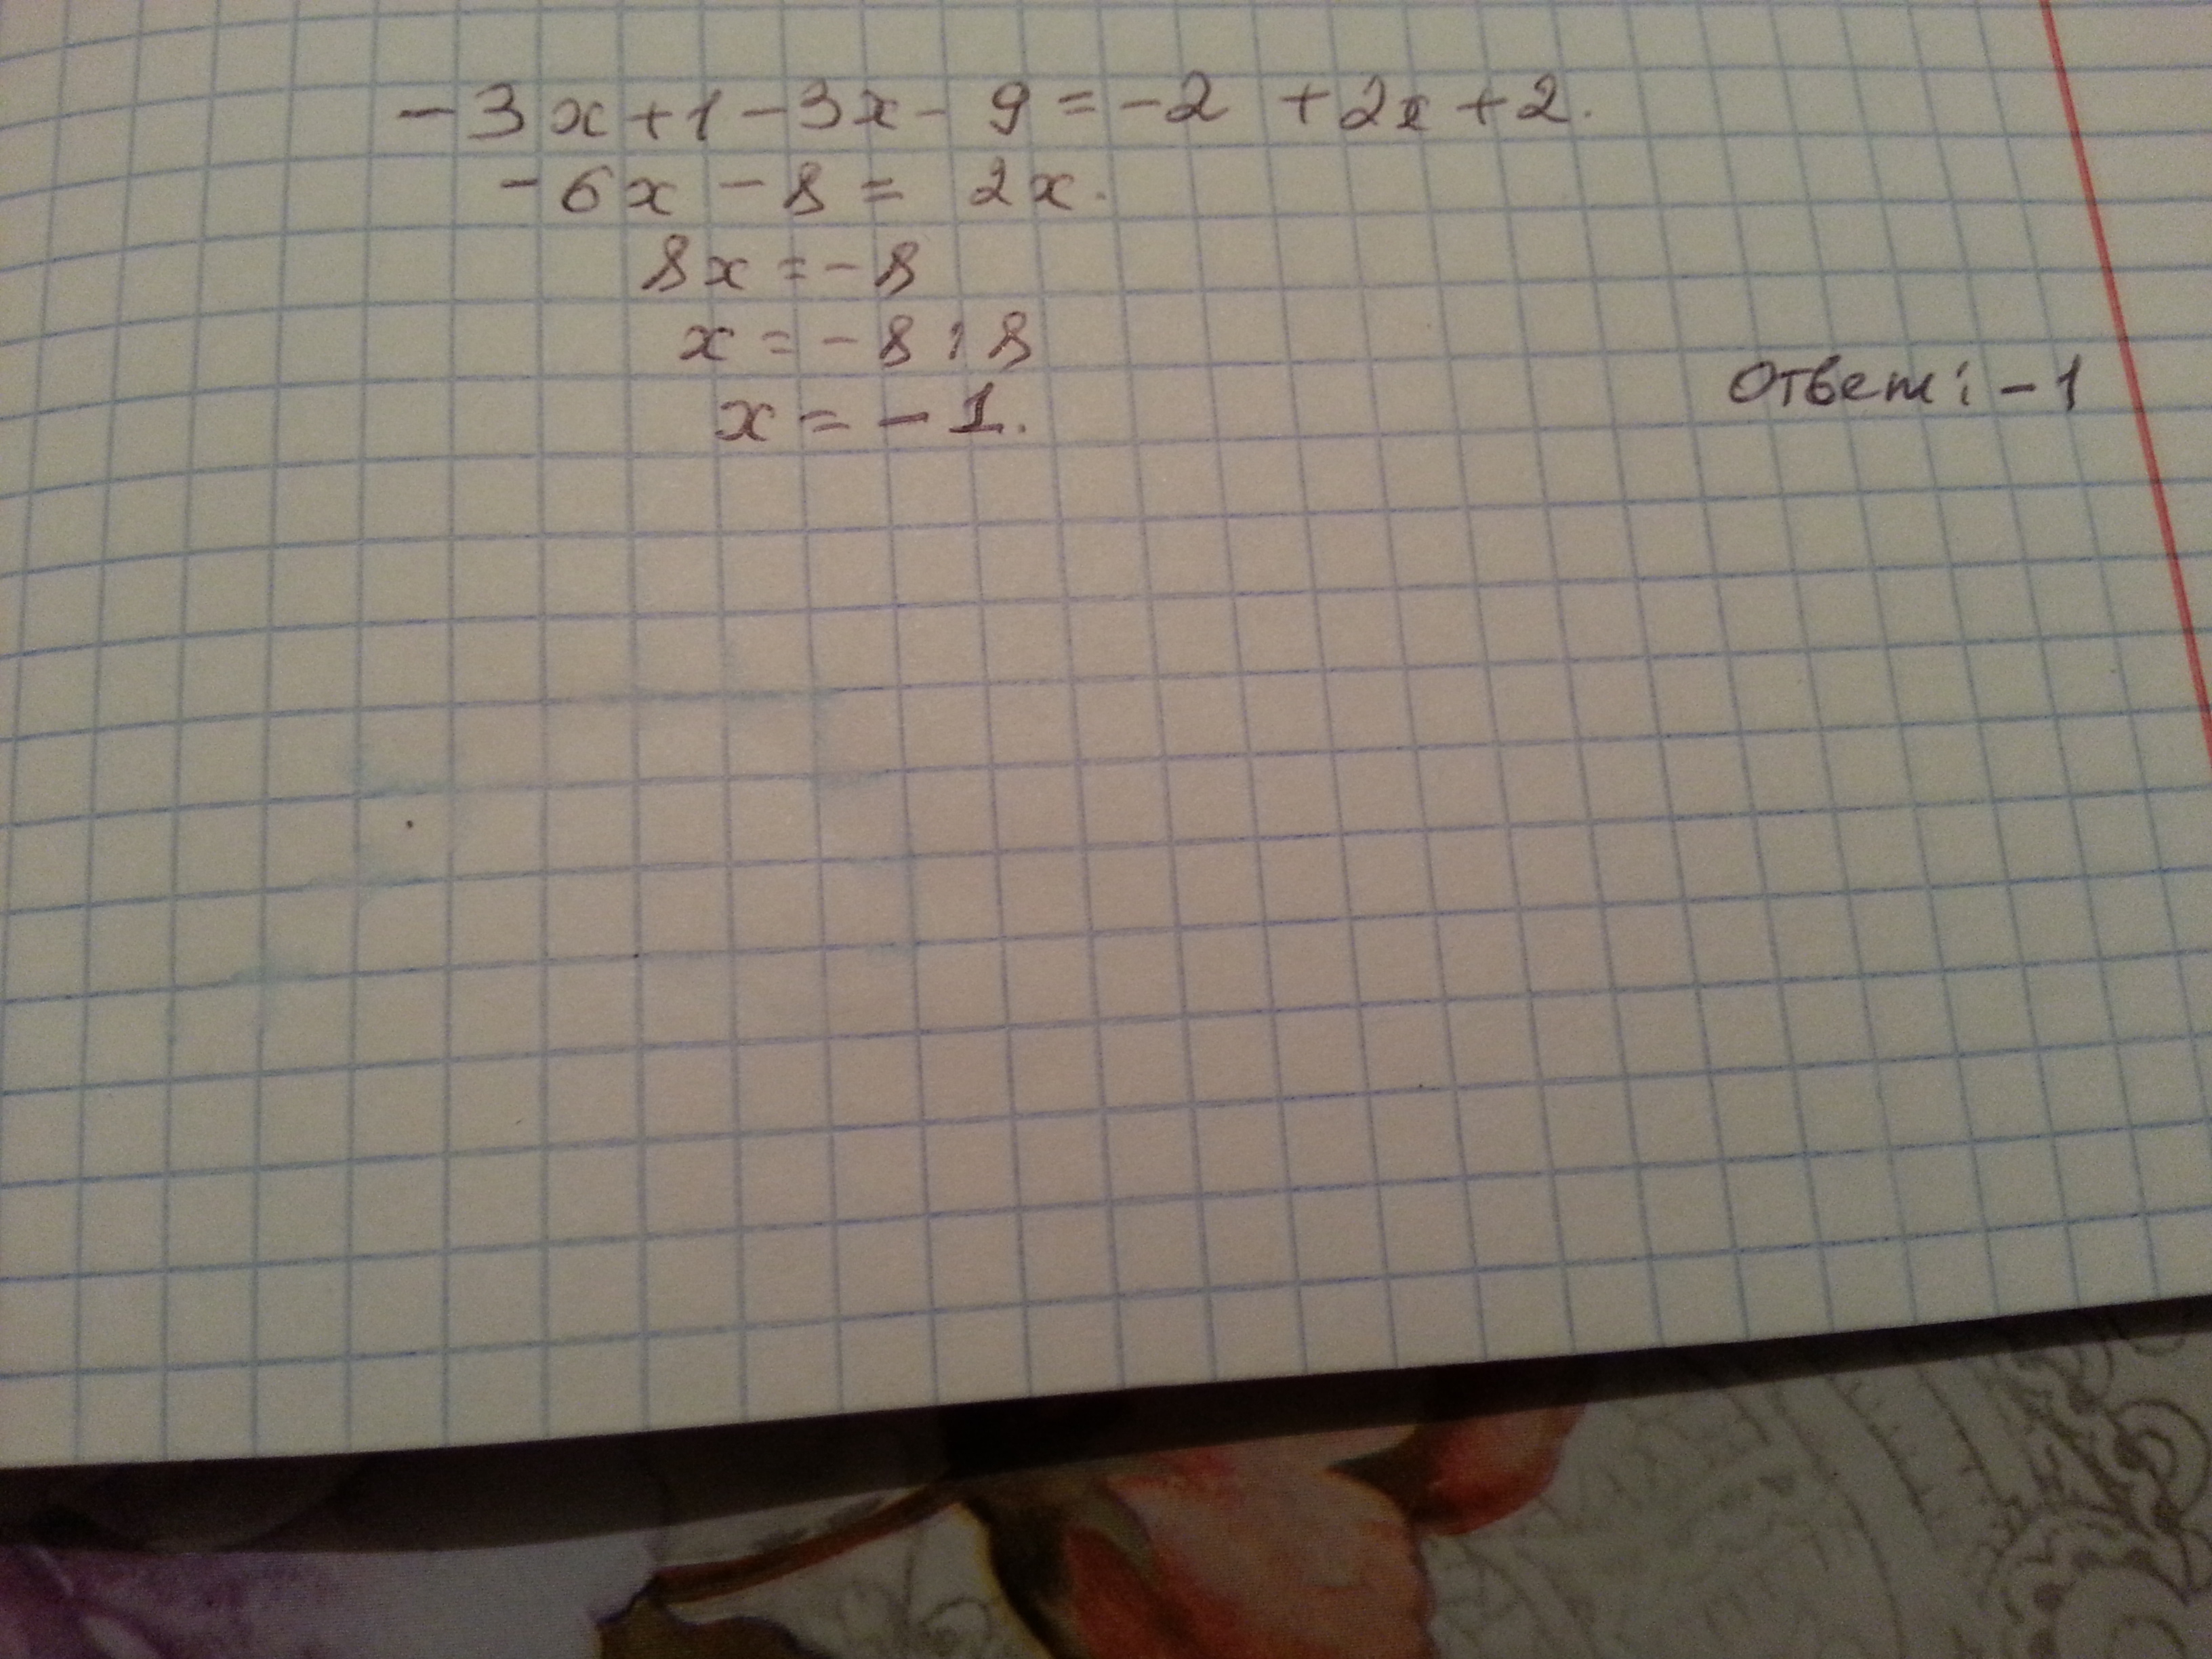 -3x+1-3x-9=-2 +2x+2.
-6x-8= 2x.
8x=-8
x=-8:8
x=-1.
Ответ: -1